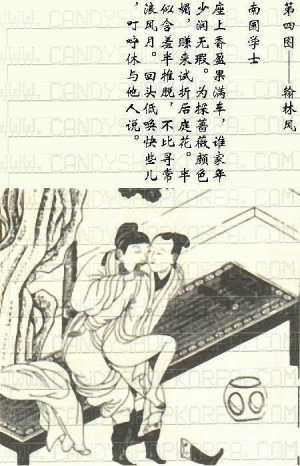 第四图——翰林风
南国学士
座上香盈果满车，谁家年
少润无瑕。为探蔷薇颜色
媚，赚来试折后庭花。半
似含羞半推脱，不比寻常
浪风月。回头低唤快些儿
，叮咛休与他人说。